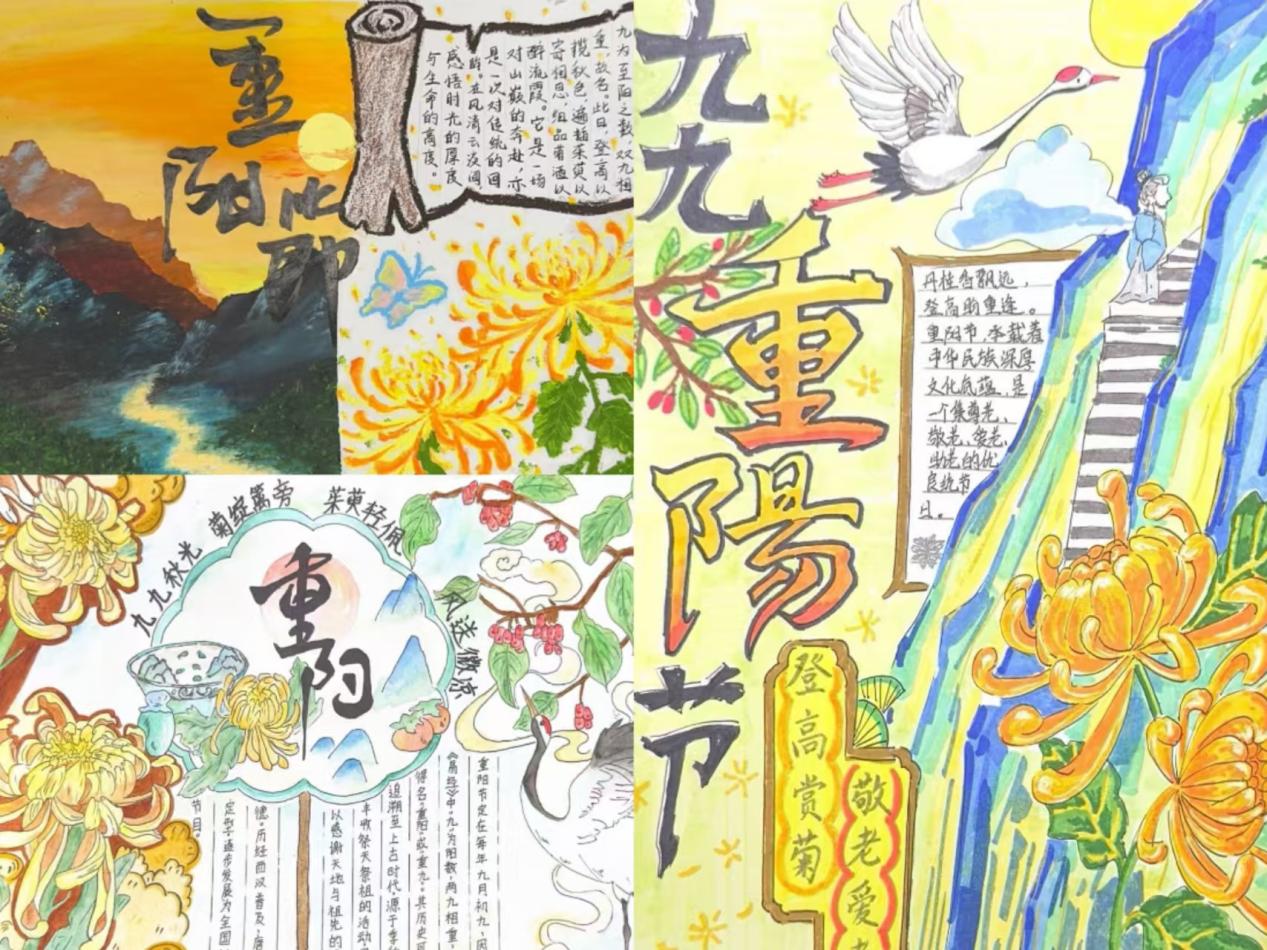 重阳
九为至阳之数,双九相
重,故名。此日,登高以
揽秋色,遍插茱萸以
寄相思,细品菊酒以
醉流霞。它是一场
对山巅的奔赴,亦
是一次对传统的回
眸。在风清云淡间,
感悟时光的厚度
与生命的高度。
九九重陽节
丹桂香飘远,
登高盼重逢。
重阳节,承载着
中华民族深厚
文化底蕴,是
一个集尊老、
敬老、爱老、
助老的优
良统节
日。
登高赏菊
敬老爱
九九秋光
菊绽篱旁
茱萸轻佩
风送微凉
重阳
重阳节定在每年九月初九,因
《易经》中“九”为阳数,两九相重,
得名“重阳”或“重九”。其历史可
追溯至上古时代,源于季
丰收祭天祭祖的活动
以感谢天地与祖先的
德。历经西汉普及,唐
定形,逐步发展为全国
节日。